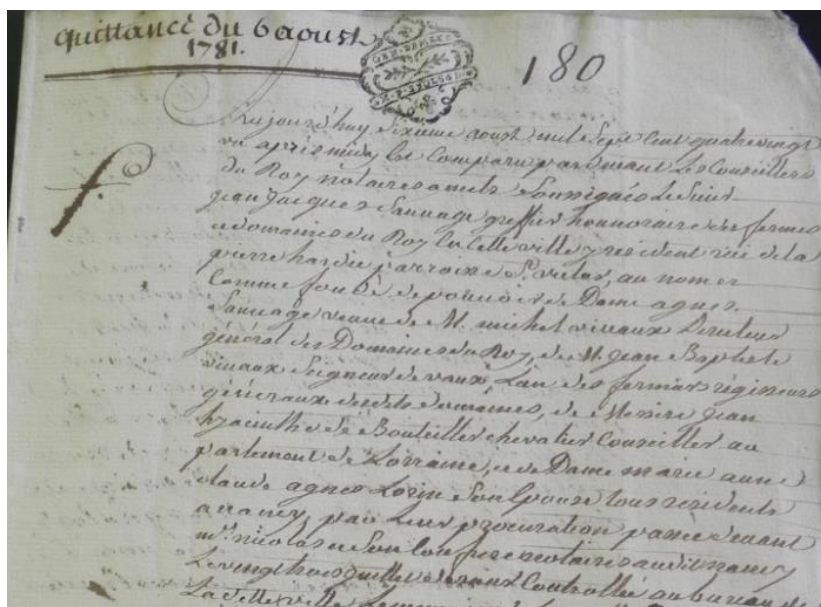 quittance du 6 aoust
1781.
180
Aujourd'huy sixieme aoust mil sept cent quatre vingt
un apres midy est comparu pardevant les Conseillers
du Roy notaires a metz soussignés le sieur
jean jacques Sauvage greffier honnoraire des fermes
et domaines du Roy en cette ville y resident rue de la
pierre hardie parroisse St victor, au nom et
Comme fondé de pouvoir de Dame agnes
Sauvage veuve de M. michel vivaux Directeur
général des Domaines du Roy, de M. Jean Baptiste
vivaux Seigneur de vaux, L'un des fermiers régisseurs
généraux desdits domaines, de Messire jean
hyacinthe de Bouteiller chevalier Conseiller au
parlement de Lorraine, et de Dame marie anne
claude agnes Lorin son Epouse tous residents
a nancy, par Leur procuration passée devant
me nicolas et Son Confrere notaires audit nancy
Le vingt trois juillet dernier Controllée au bureau de
La ditte ville